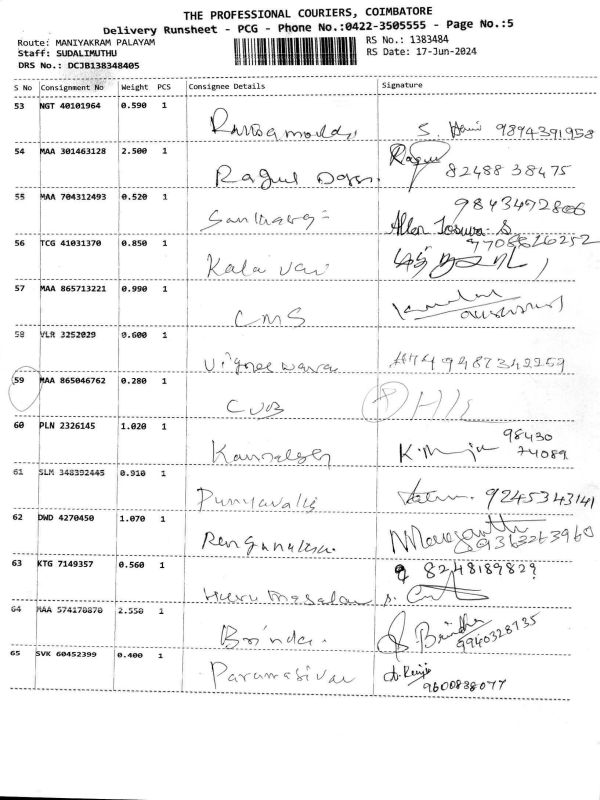 THE PROFESSIONAL COURIERS, COIMBATORE
Delivery Runsheet - PCG - Phone No.:0422-3505555 - Page No.:5
Route: MANIYAKRAM PALAYAM
RS No.: 1383484
Staff: SUDALIMUTHU
RS Date: 17-Jun-2024
DRS No.: DCJB138348405
S No Consignment No Weight PCS Consignee Details Signature
53 NGT 40101964 0.590 1
S. 9894391958
54 MAA 301463128 2.500 1
Ragul
82488 38475
55 MAA 704312493 0.520 1
9843472806
Allen Josuva. S
56 TCG 41031370 0.850 1
7708826252
Kalai
57 MAA 865713221 0.990 1
CMS
58 VLR 3252029 0.600 1
9487342259
59 MAA 865046762 0.280 1
CUB
60 PLN 2326145 1.020 1
98430
74089
61 SLM 348392445 0.910 1
9245343141
62 DWD 4270450 1.070 1
9363263960
63 KTG 7149357 0.560 1
8248189829
64 MAA 574170870 2.550 1
Brinda. Brindha
9940328735
65 SVK 60452399 0.400 1
Paramasivan
9600838077